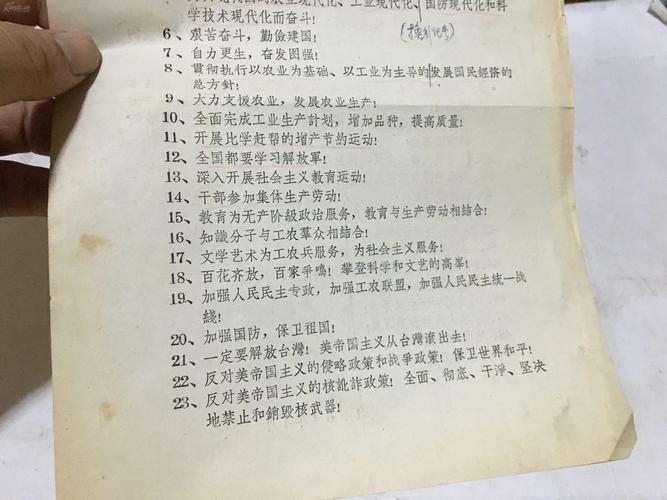 农业现代化、工业现代化、国防现代化和科
学技术现代化而奋斗!
6、艰苦奋斗，勤俭建国!
7、自力更生，奋发图强!
8、贯彻执行以农业为基础、以工业为主导的发展国民經济的
总方針!
9、大力支援农业，发展农业生产!
10、全面完成工业生产計划，增加品种，提高质量!
11、开展比学赶帮的增产节約运动!
12、全国都要学习解放軍!
13、深入开展社会主义教育运动!
14、干部参加集体生产劳动!
15、教育为无产阶级政治服务，教育与生产劳动相結合!
16、知識分子与工农羣众相結合!
17、文学艺术为工农兵服务，为社会主义服务!
18、百花齐放，百家爭鳴!攀登科学和文艺的高峯!
19、加强人民民主专政，加强工农联盟，加强人民民主統一战
綫!
20、加强国防，保卫祖国!
21、一定要解放台灣!美帝国主义从台灣滾出去!
22、反对美帝国主义的侵略政策和战爭政策!保卫世界和平!
23、反对美帝国主义的核訛詐政策!全面、彻底、干淨、坚决
地禁止和銷毀核武器!